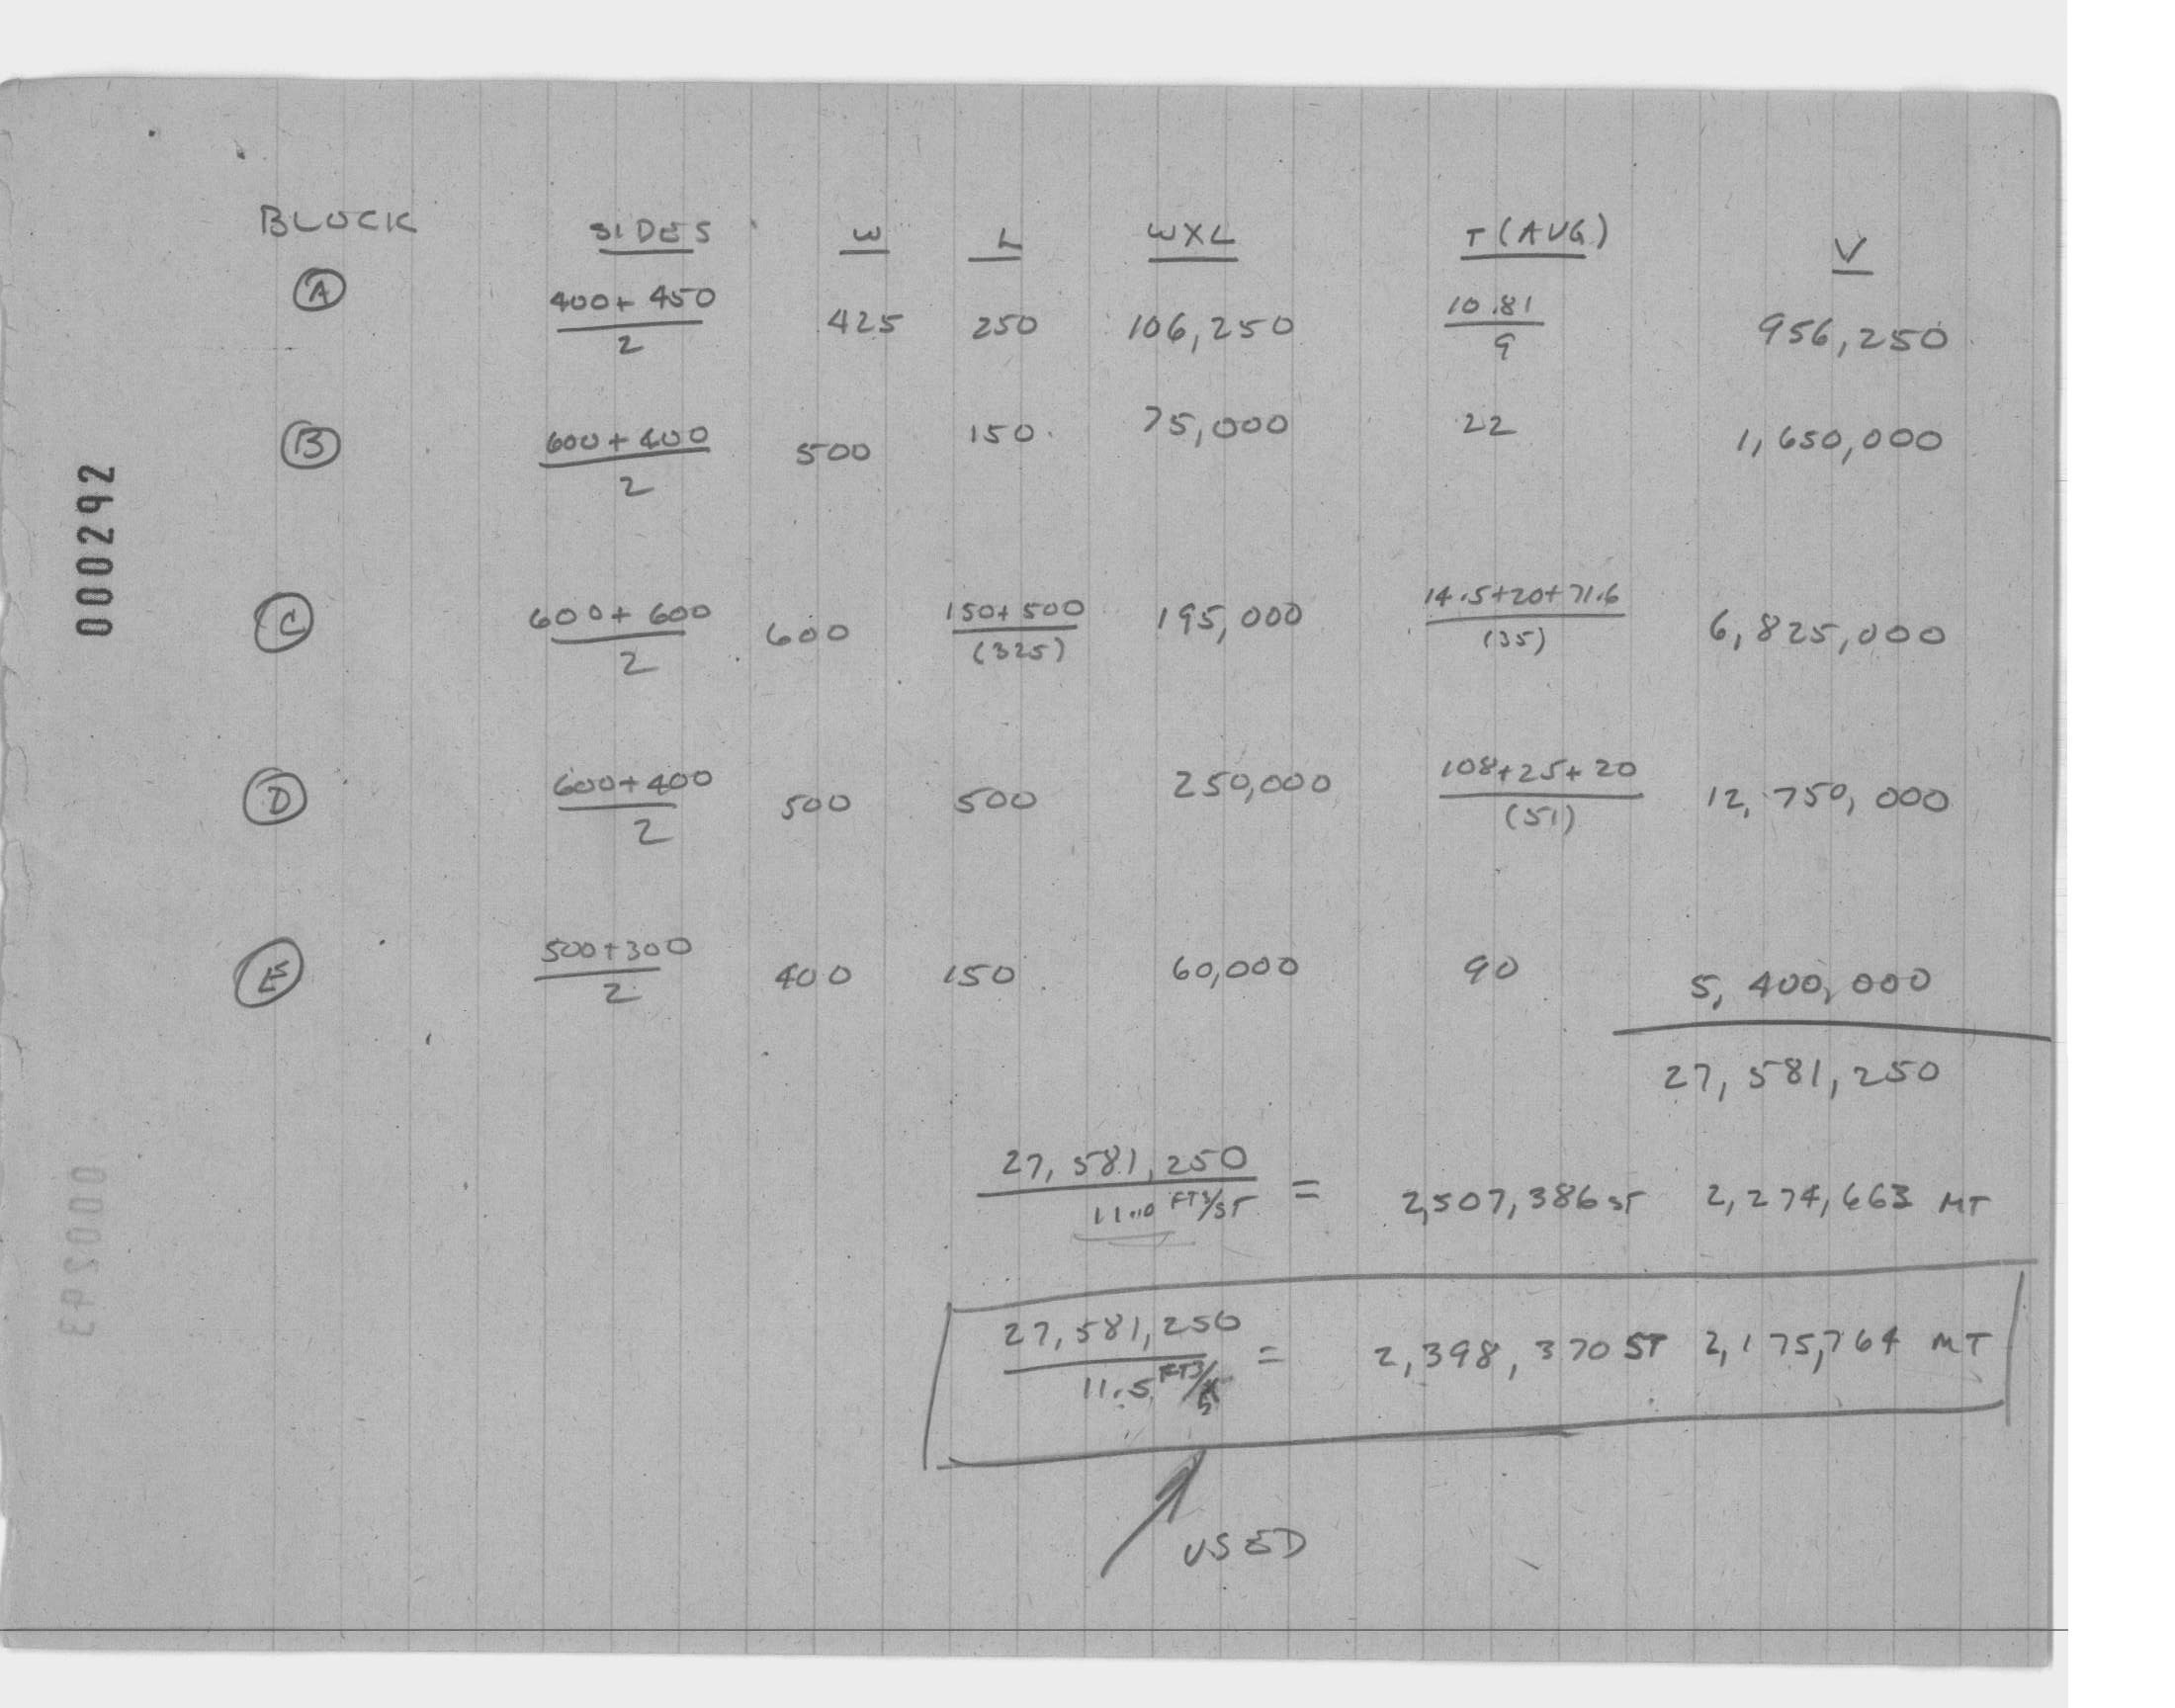 BLOCK SIDES W L WXL T (AVG) V
A 400+450 / 2 425 250 106,250 10.81 / 9 956,250
B 600+400 / 2 500 150 75,000 22 1,650,000
C 600+600 / 2 600 150+500 / (325) 195,000 14.5+20+71.6 / (35) 6,825,000
D 600+400 / 2 500 500 250,000 108+25+20 / (51) 12,750,000
E 500+300 / 2 400 150 60,000 90 5,400,000
27,581,250
27,581,250 / 11.0 FT3/ST = 2,507,386 ST 2,274,663 MT
27,581,250 / 11.5 FT3/ = 2,398,370 ST 2,175,764 MT
USED
000292
000293